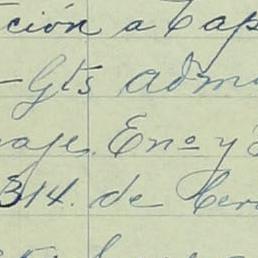 ción a Cap
-Gts adm
ajes. Enº y
314. de